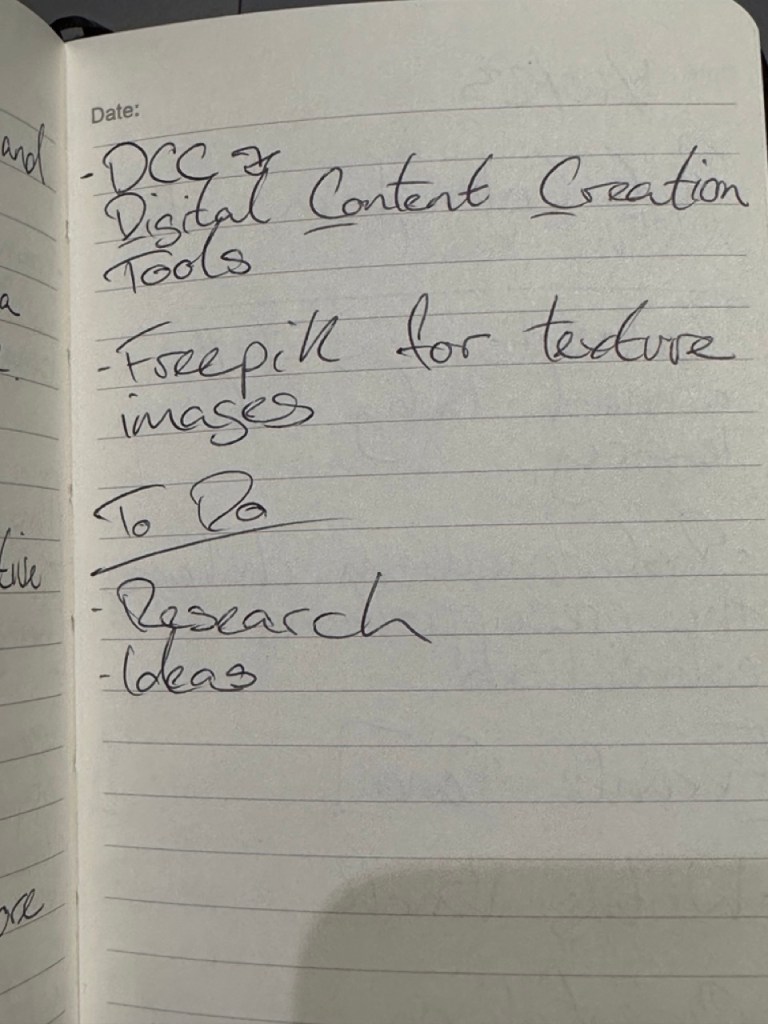 Date:
- DCC
Digital Content Creation
Tools
- Freepik for texture
images
To Do
- Research
- Ideas
and
a
tive
ore